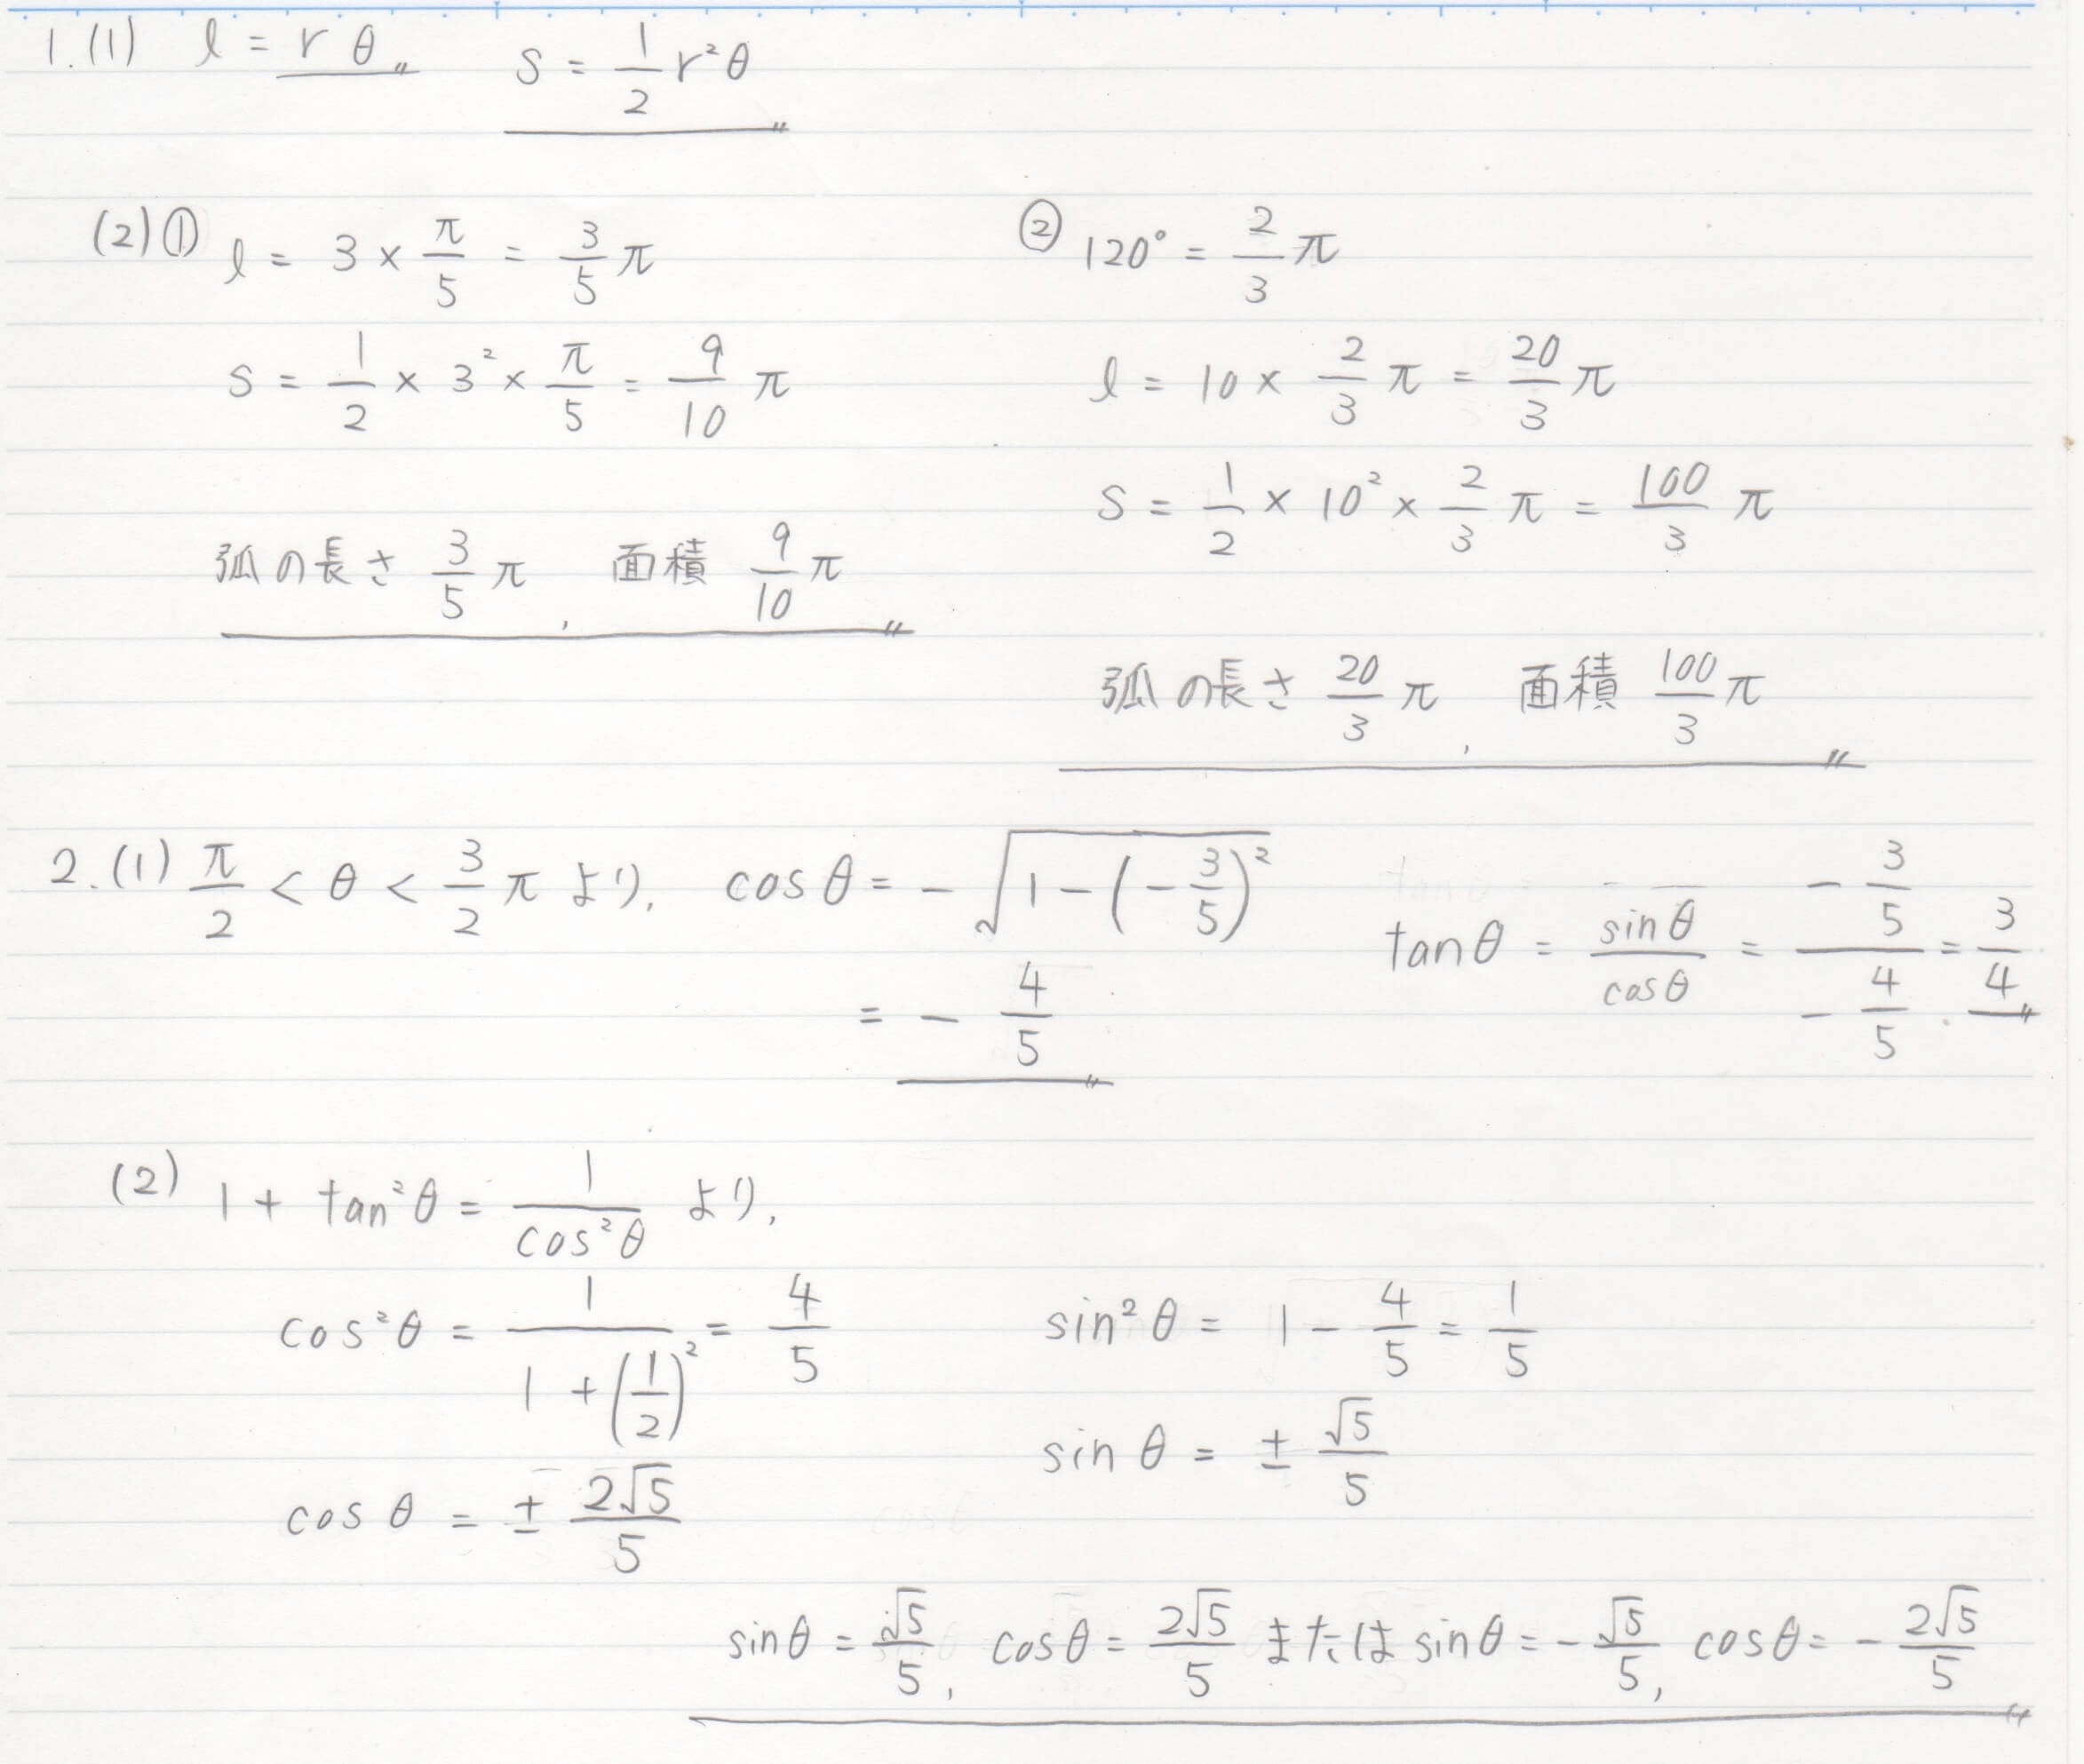 1.(1) l = rθ〃 S = 1/2 r²θ〃
(2)① l = 3 × π/5 = 3/5 π
S = 1/2 × 3² × π/5 = 9/10 π
弧の長さ 3/5 π, 面積 9/10 π〃
② 120° = 2/3 π
l = 10 × 2/3 π = 20/3 π
S = 1/2 × 10² × 2/3 π = 100/3 π
弧の長さ 20/3 π, 面積 100/3 π〃
2.(1) π/2 < θ < 3/2 π より, cosθ = -√(1-(-3/5)²)
= -4/5〃
tanθ = sinθ/cosθ = (-3/5)/(-4/5) = 3/4〃
(2) 1 + tan²θ = 1/cos²θ より,
cos²θ = 1/(1+(1/2)²) = 4/5
cosθ = ± 2√5/5
sin²θ = 1 - 4/5 = 1/5
sinθ = ± √5/5
sinθ = √5/5, cosθ = 2√5/5 または sinθ = -√5/5, cosθ = -2√5/5〃